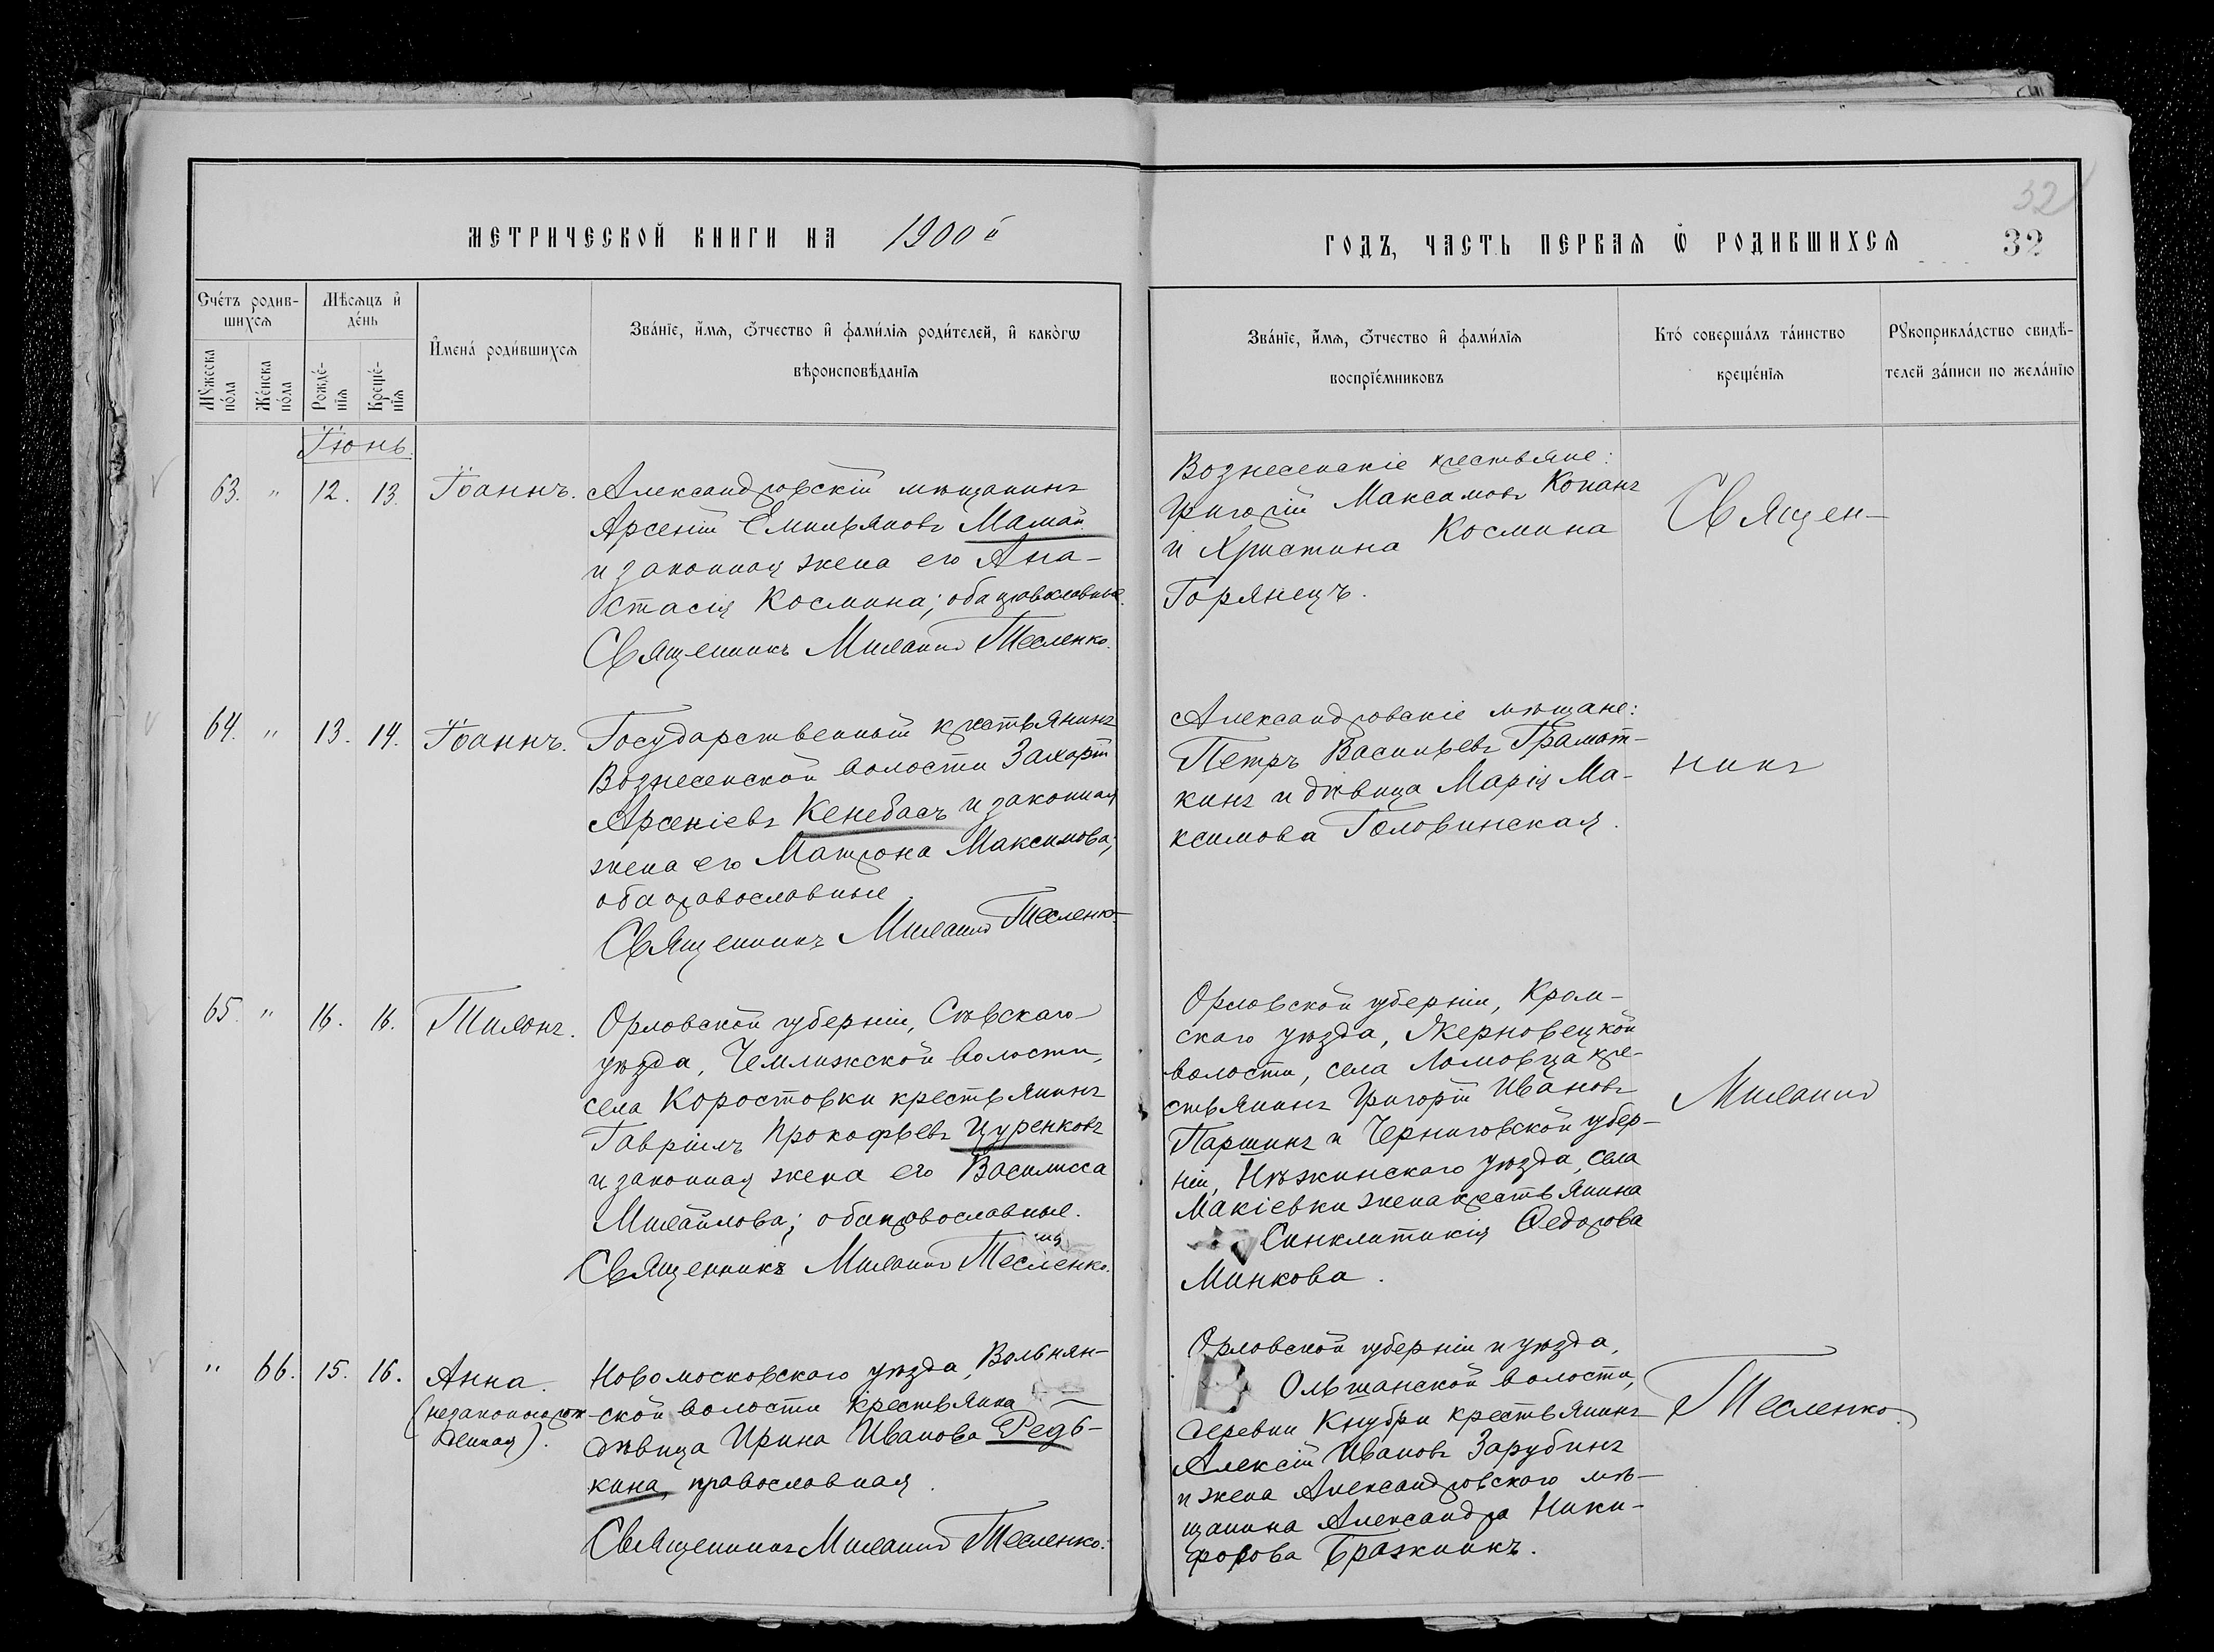 МЕТРИЧЕСКОЙ КНИГИ НА 1900й
ГОДЪ, ЧАСТЬ ПЕРВАЯ Ѿ РОДИВШИХСЯ
32
32
Счетъ родив-
шихся
Мужеска пола
Женска пола
Мѣсяцъ и
день
Рожде-
нія
Креще-
нія
Имена родившихся
Званіе, имя, отчество и фамилія родителей, и какогѡ
вѣроисповѣданія
Званіе, имя, отчество и фамилія
воспріемниковъ
Кто совершалъ таинство
крещенія
Рукоприкладство свидѣ-
телей записи по желанію
Іюнь.
63. " 12. 13. Іоаннъ.
Александровскій мѣщанинъ
Арсеній Емильяновъ Мамай
и законная жена его Ана-
стасія Космина; оба православные.
Священникъ Михаилъ Тесленко.
Вознесенскіе крестьяне:
Григорій Максимовъ Копанъ
и Христина Космина
Горянецъ.
Священ-
64. " 13. 14. Іоаннъ.
Государственный крестьянинъ
Вознесенской волости Захарій
Арсеніевъ Кенебасъ и законная
жена его Матрона Максимова;
оба православные.
Священникъ Михаилъ Тесленко.
Александровскіе мѣщане:
Петръ Васильевъ Грамат-
кинъ и дѣвица Марія Ма-
ксимова Головинская.
никъ
65. " 16. 16. Тихонъ.
Орловской губерніи, Сѣвскаго
уѣзда, Чемлижской волости,
села Коростовки крестьянинъ
Гавріилъ Прокофьевъ Цуренковъ
и законная жена его Василисса
Михайлова; оба православные.
Священникъ Михаилъ Тесленко.
Орловской губерніи, Кром-
скаго уѣзда, Жерновецкой
волости, села Ломовца кре-
стьянинъ Григорій Ивановъ
Паршинъ и Черниговской губер-
ніи, Нѣжинскаго уѣзда, села
Макіевки жена крестьянина
Синклитикія Ѳедорова
Минкова.
Михаилъ
" 66. 15. 16. Анна.
(незаконнорож-
денная).
Новомосковскаго уѣзда, Вольнян-
ской волости крестьянка
дѣвица Ирина Иванова Редь-
кина, православная.
Священникъ Михаилъ Тесленко.
Орловской губерніи и уѣзда,
Ольшанской волости,
деревни Кнубри крестьянинъ
Алексій Ивановъ Зарубинъ
и жена Александровскаго мѣ-
щанина Александра Ники-
форова Бражникъ.
Тесленко.